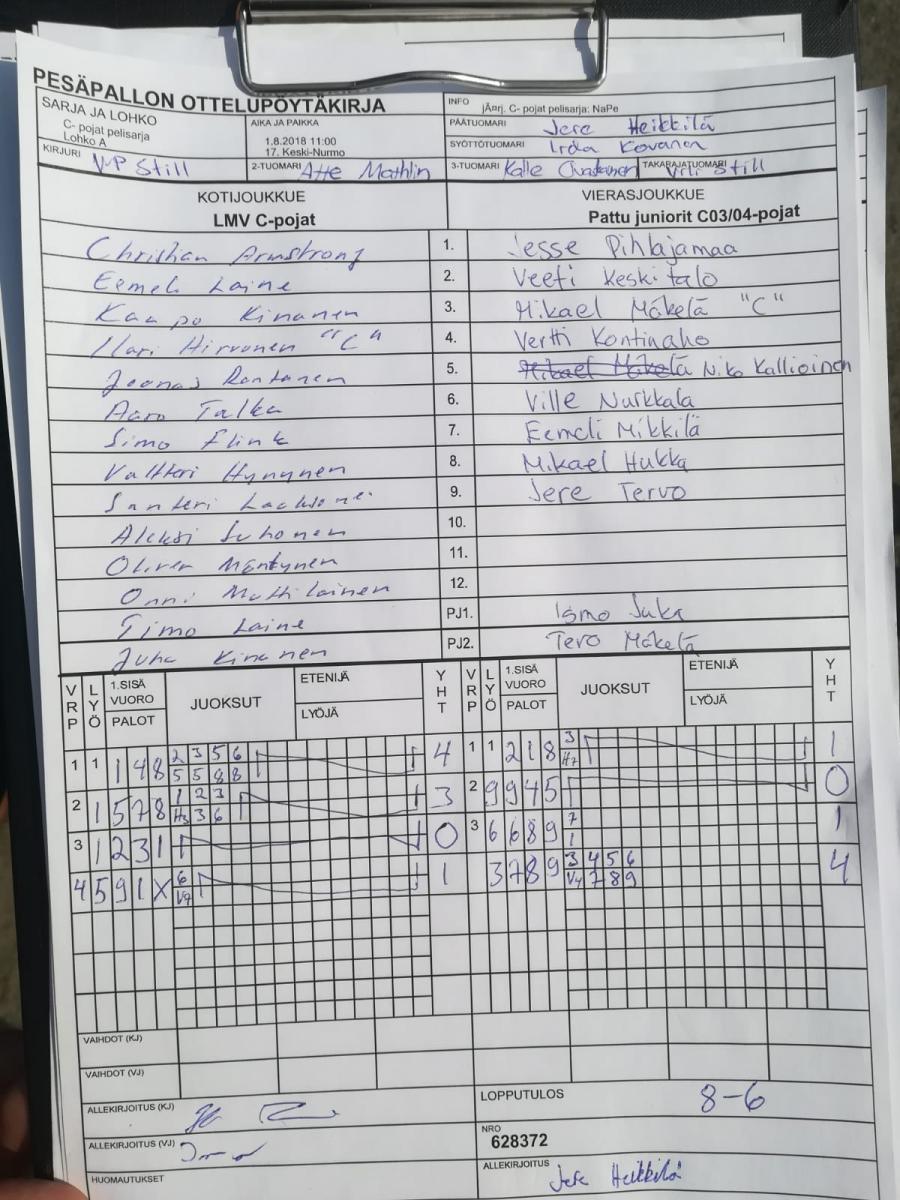 PESÄPALLON OTTELUPÖYTÄKIRJA
SARJA JA LOHKO
C- pojat pelisarja
Lohko A
AIKA JA PAIKKA
1.8.2018 11:00
17. Keski-Nurmo
INFO
jÃ¤rj. C- pojat pelisarja: NaPe
PÄÄTUOMARI Jere Heikkilä
SYÖTTÖTUOMARI Kovanen
KIRJURI VVP Still
2-TUOMARI Atte Mathlin
3-TUOMARI Kalle
TAKARAJATUOMARI Still
KOTIJOUKKUE
LMV C-pojat
VIERASJOUKKUE
Pattu juniorit C03/04-pojat
Christian Armstrong 1. Jesse Pihlajamaa
Eemeli Laine 2. Veeti Keskitalo
Kaapo Kinanen 3. Mikael Mäkelä "C"
Ilari Hirvonen "C" 4. Vertti Kontinaho
Joonas Rantanen 5. Mikael Mäkelä Niko Kallioinen
Aaro Talka 6. Ville Nurkkala
Simo Flink 7. Eemeli Mikkilä
Valtteri Hynynen 8. Mikael Hukka
Santeri Laaksonen 9. Jere Tervo
Aleksi Suhonen 10.
Oliver Mäntynen 11.
Onni Mattilainen 12.
Timo Laine PJ1. Ismo Juka
Juha Kinanen PJ2. Tero Mäkelä
VRP LYÖ 1.SISÄ VUORO PALOT JUOKSUT ETENIJÄ LYÖJÄ YHT VRP LYÖ 1.SISÄ VUORO PALOT JUOKSUT ETENIJÄ LYÖJÄ YHT
1 1 1 4 8 2 3 5 6 4 1 1 2 1 8 3 1
5 5 8 8 H7
2 1 5 7 8 1 2 3 3 2 9 9 4 5 0
H3 3 6
3 1 2 3 1 0 3 6 6 8 9 7 1
1
4 5 9 1 X 6 1 3 7 8 9 3 4 5 6 4
V9 V4 7 8 9
VAIHDOT (KJ)
VAIHDOT (VJ)
ALLEKIRJOITUS (KJ)
LOPPUTULOS 8-6
ALLEKIRJOITUS (VJ)
NRO
628372
HUOMAUTUKSET
ALLEKIRJOITUS Jere Heikkilä